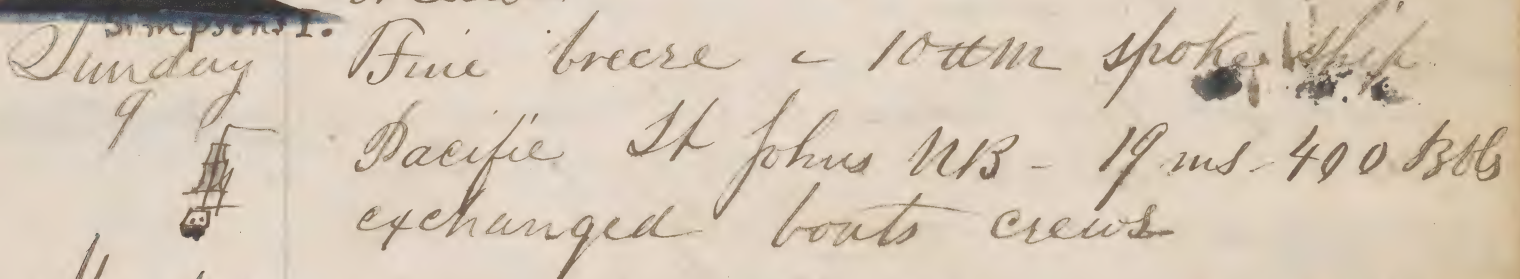 Simpsons I.
Sunday Fine breeze - 10 AM spoke ship
9
Pacific St Johns NB - 19 ms - 400 Bbls
exchanged boats crews